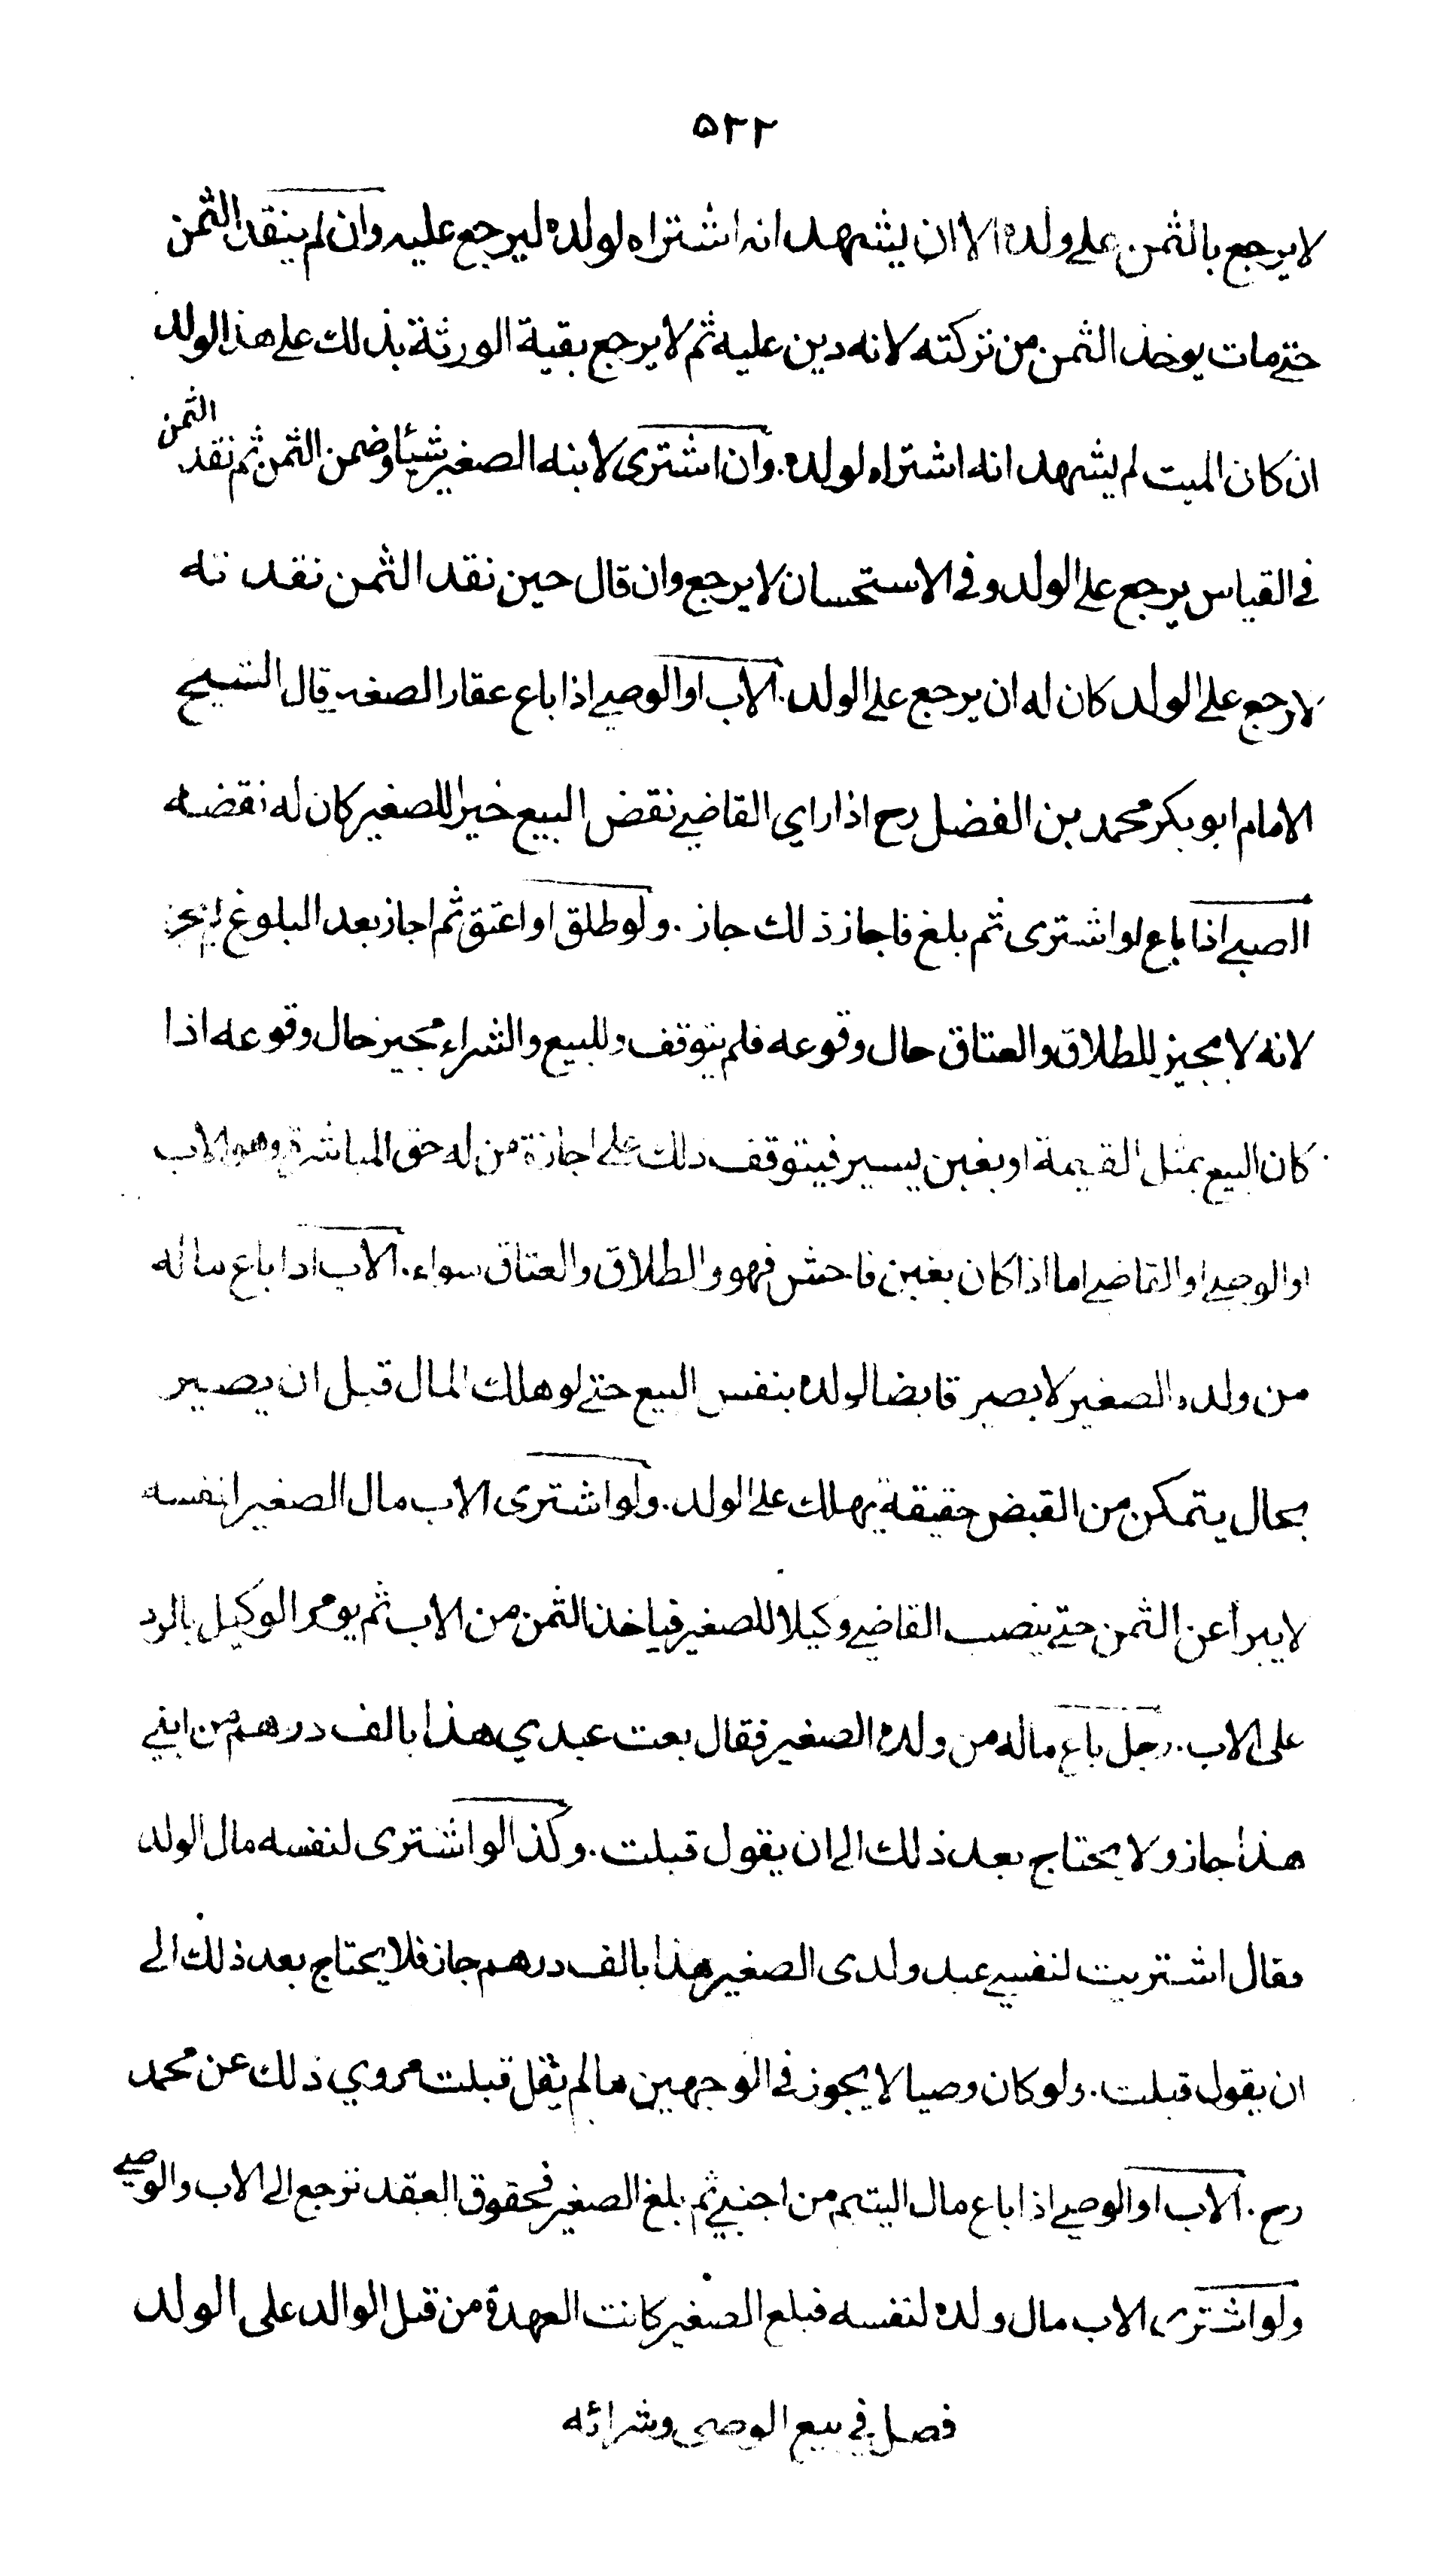 ۵۲۲
لا يرجع بالثمن على ولده الا ان يشهد انه اشتراه لولده ليرجع عليه وان لم ينقد الثمن
حتى مات يوخذ الثمن من تركته لانه دين عليه ثم لا يرجع بقية الورثة بذلك على هذا الولد
ان كان الميت لم يشهد انه اشتراه لولده. وان اشترى لابنه الصغير شيئا وضمن الثمن ثم نقد الثمن
في القياس يرجع على الولد وفي الاستحسان لا يرجع وان قال حين نقد الثمن نقدته
لارجع على الولد كان له ان يرجع على الولد. الاب او الوصي اذا باع عقار الصغير قال الشيخ
الامام ابو بكر محمد بن الفضل رح اذا راي القاضي نقض البيع خيرا للصغير كان له نقضه
الصبي اذا باع لو اشترى ثم بلغ فاجاز ذلك جاز. ولو طلق او اعتق ثم اجاز بعد البلوغ لم يجز
لانه لا مجيز للطلاق والعتاق حال وقوعه فلم يتوقف وللبيع والشراء مجيز حال وقوعه اذا
كان البيع بمثل القيمة او بغبن يسير فيتوقف ذلك على اجازة من له حق المباشرة وهو الاب
او الوصي او القاضي اما اذا كان بغبن فاحش فهو والطلاق والعتاق سواء. الاب اذا باع ماله
من ولده الصغير لا يصير قابضا لولده بنفس البيع حتى لو هلك المال قبل ان يصير
بحال يتمكن من القبض حقيقة يهلك على الولد. ولو اشترى الاب مال الصغير لنفسه
لا يبرأ عن الثمن حتى ينصب القاضي وكيلا للصغير فياخذ الثمن من الاب ثم يومر الوكيل بالرد
على الاب. رجل باع ماله من ولده الصغير فقال بعت عبدي هذا بالف درهم من ابني
هذا جاز ولا يحتاج بعد ذلك الى ان يقول قبلت. وكذا لو اشترى لنفسه مال الولد
فقال اشتريت لنفسي عبد ولدى الصغير هذا بالف درهم جاز فلا يحتاج بعد ذلك الى
ان يقول قبلت. ولو كان وصيا لا يجوز في الوجهين ما لم يقل قبلت مروي ذلك عن محمد
رح. الاب او الوصي اذا باع مال اليتيم من اجنبي ثم بلغ الصغير فحقوق العقد ترجع الى الاب والوصي
ولو اشترى الاب مال ولده لنفسه فبلغ الصغير كانت العهدة من قبل الوالد على الولد
فصل في بيع الوصى وشرائه